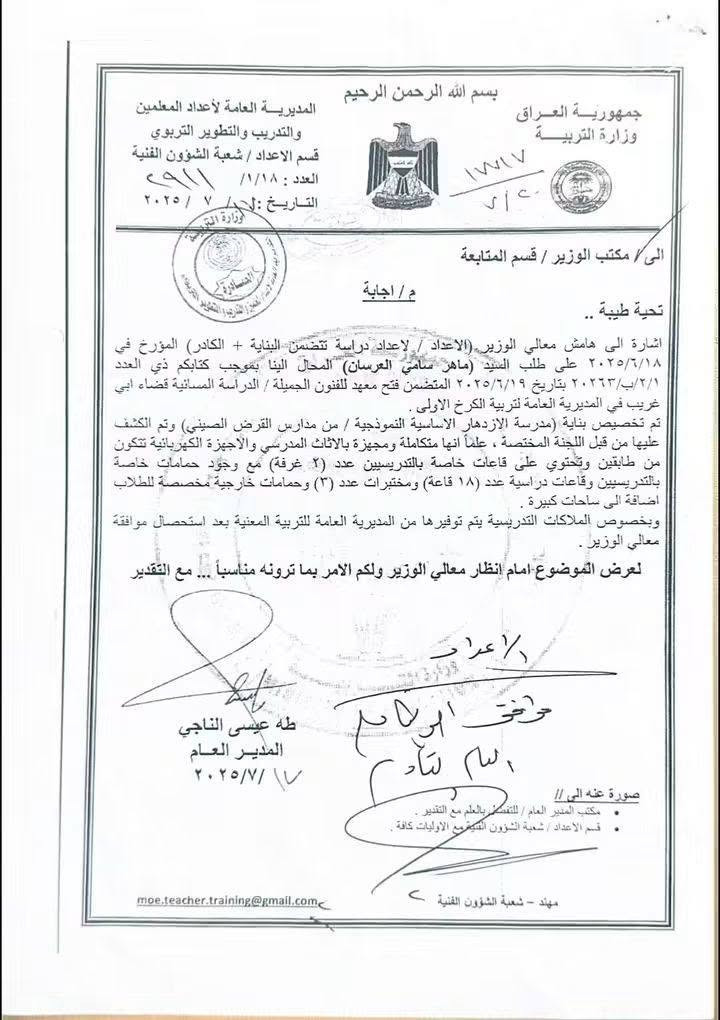 بسم الله الرحمن الرحيم
جمهوريــة العــراق
وزارة التربيــة
المديريــة العامة لأعداد المعلمين
والتدريب والتطوير التربوي
قسم الاعداد / شعبة الشؤون الفنية
العدد : ١/١٨/ ٢٩١١
التاريخ : ١٧/ ٧ / ٢٠٢٥
الى / مكتب الوزير / قسم المتابعة
م / اجابة
تحية طيبة ..
اشارة الى هامش معالي الوزير (الاعداد / لإعداد دراسة تتضمن البناية + الكادر) المؤرخ في
٢٠٢٥/٦/١٨ على طلب السيد (ماهر سامي العرسان) المحال الينا بموجب كتابكم ذي العدد
٢/١/ب/٢٠٢٦٣ بتاريخ ٢٠٢٥/٦/١٩ المتضمن فتح معهد للفنون الجميلة / الدراسة المسائية قضاء ابي
غريب في المديرية العامة لتربية الكرخ الاولى .
تم تخصيص بناية (مدرسة الازدهار الاساسية النموذجية / من مدارس القرض الصيني) وتم الكشف
عليها من قبل اللجنة المختصة ، علماً انها متكاملة ومجهزة بالاثاث المدرسي والاجهزة الكهربائية تتكون
من طابقين وتحتوي على قاعات خاصة بالتدريسيين عدد (٢ غرفة) مع وجود حمامات خاصة
بالتدريسيين وقاعات دراسية عدد (١٨ قاعة) ومختبرات عدد (٣) وحمامات خارجية مخصصة للطلاب
اضافة الى ساحات كبيرة .
وبخصوص الملاكات التدريسية يتم توفيرها من المديرية العامة للتربية المعنية بعد استحصال موافقة
معالي الوزير .
لعرض الموضوع امام انظار معالي الوزير ولكم الامر بما ترونه مناسباً ... مع التقدير
الاعداد
طه عيسى الناجي
المديـر العـام
١٧/ ٢٠٢٥/٧
صورة عنه الى //
• مكتب المدير العام / للتفضل بالعلم مع التقدير .
• قسم الاعداد / شعبة الشؤون الفنية مع الاوليات كافة .
مهند – شعبة الشؤون الفنية
moe.teacher.training@gmail.com